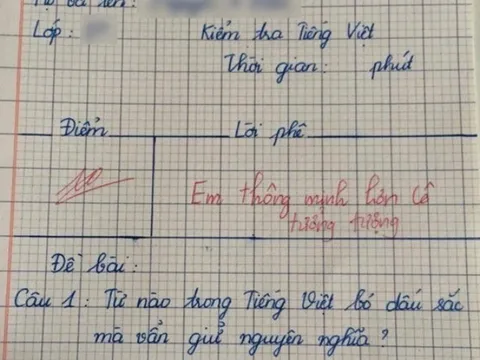 Họ và tên:
Lớp: Kiểm tra Tiếng Việt
Thời gian: phút
Điểm Lời phê
10 Em thông minh hơn Cô
tưởng tượng
Đề bài:
Câu 1: Từ nào trong Tiếng Việt bỏ dấu sắc
mà vẫn giữ nguyên nghĩa?